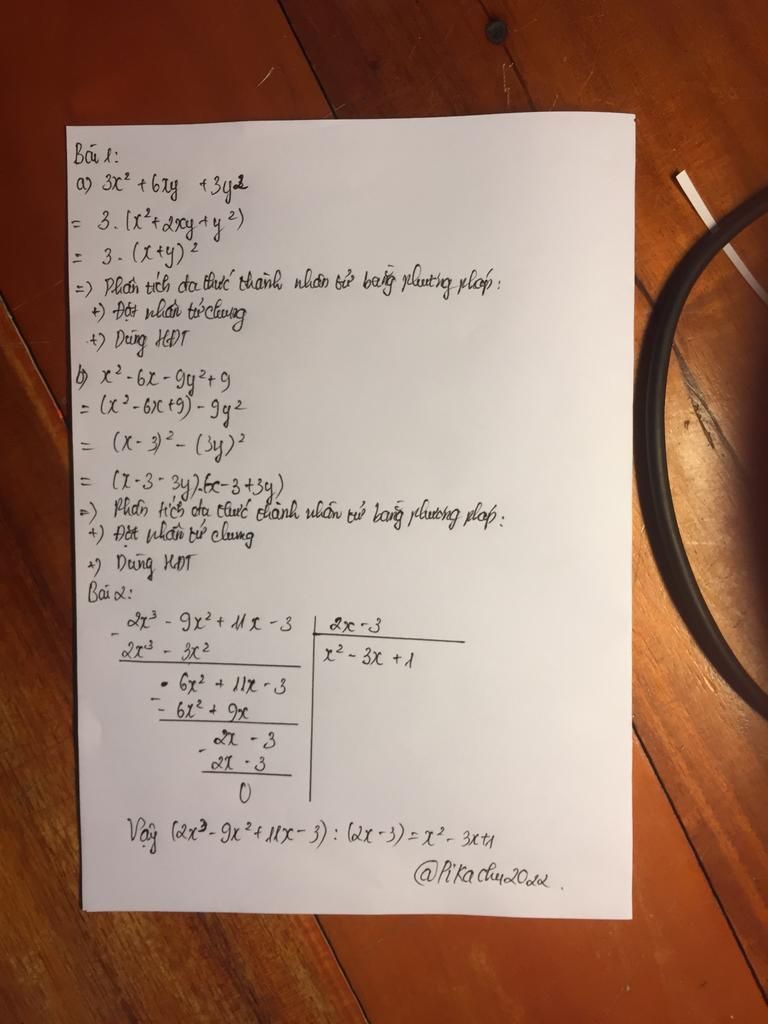 Bài 1:
a) 3x² + 6xy + 3y²
= 3.(x²+2xy+y²)
= 3.(x+y)²
=) Phân tích đa thức thành nhân tử bằng phương pháp:
+) Đặt nhân tử chung
+) Dùng HĐT
b) x² - 6x - 9y² + 9
= (x² - 6x + 9) - 9y²
= (x - 3)² - (3y)²
= (x - 3 - 3y).(x - 3 + 3y)
=) Phân tích đa thức thành nhân tử bằng phương pháp:
+) Đặt nhân tử chung
+) Dùng HĐT
Bài 2:
- 2x³ - 9x² + 11x - 3 | 2x - 3
2x³ - 3x² | x² - 3x + 1
- 6x² + 11x - 3
- - 6x² + 9x
2x - 3
- 2x - 3
0
Vậy (2x³ - 9x² + 11x - 3) : (2x - 3) = x² - 3x + 1
@Pikachu2022.